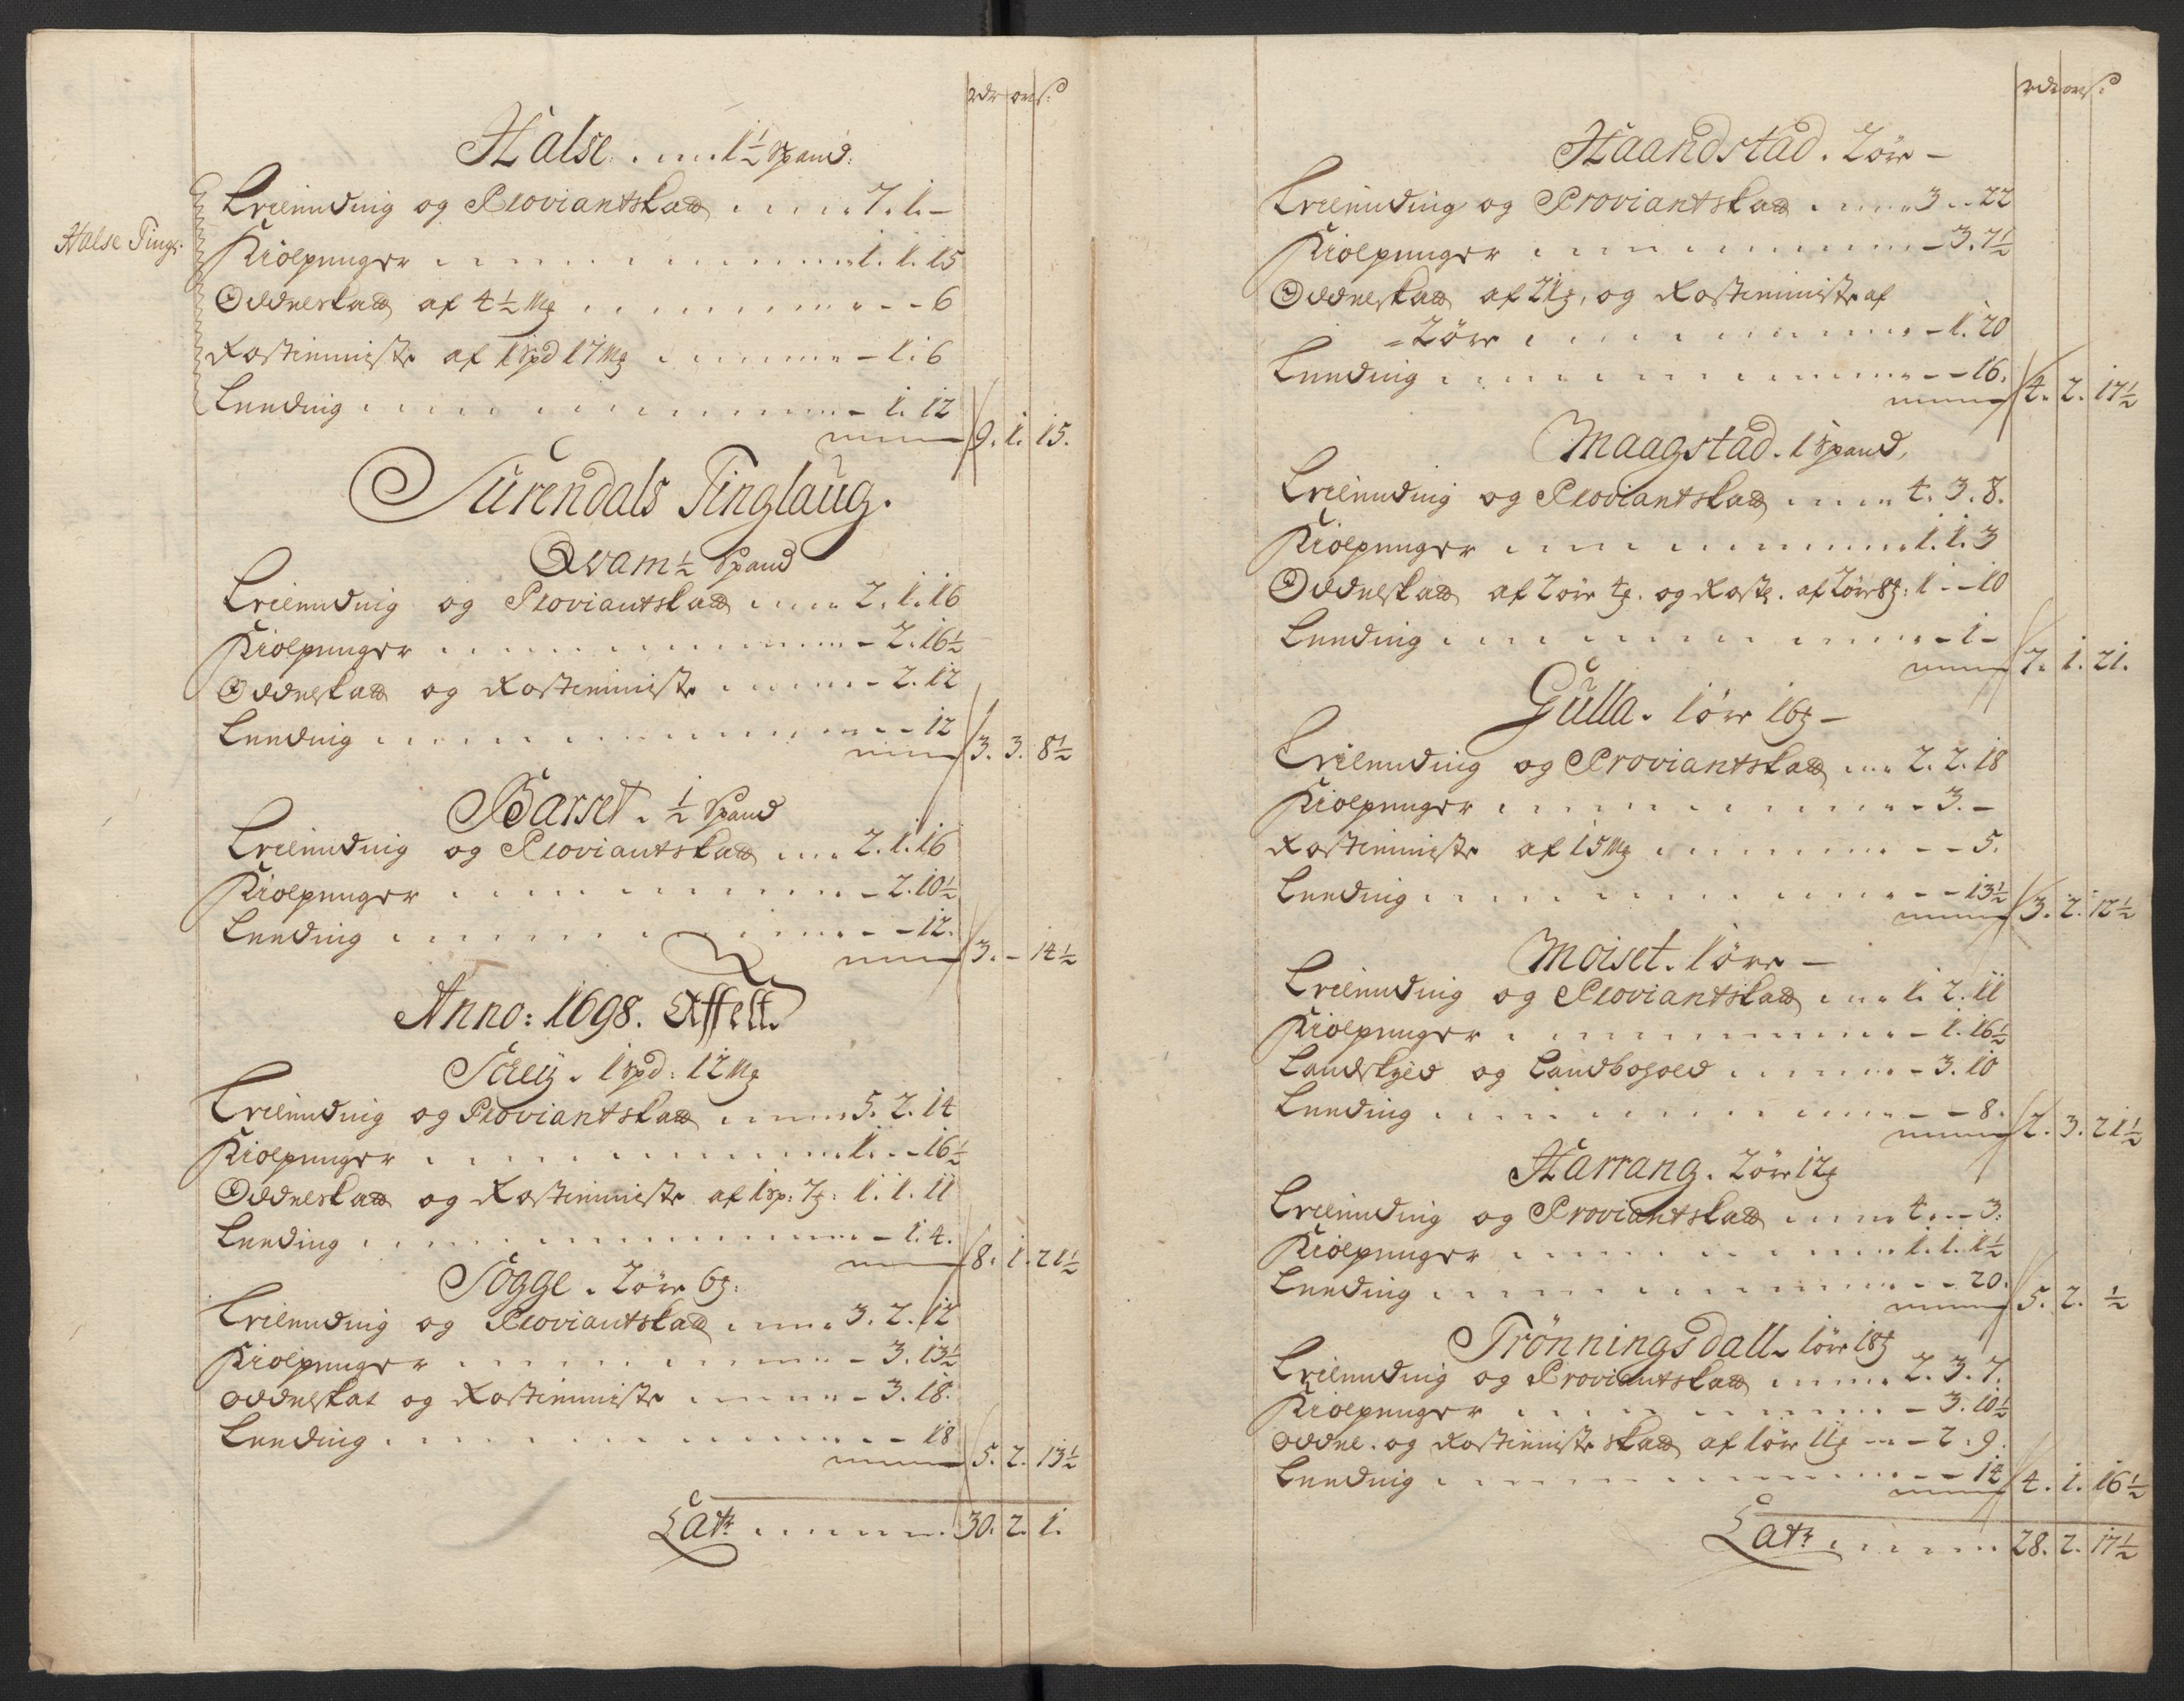 rdr ort s:
Halse . . . . 1½ Spand:
Halse Tingl:
Leilending og Proviantskatt . . . . . 7. 1. –
Kiolpenger . . . . . . . . . . 1. 1. 15
Oddelskatt af 4½ Mg . . . . . . . . – – 6
Rostieniste af 1 Spd 17 Mg . . . . . . – 1. 6
Leeding . . . . . . . . . . . . – 1. 12
9. 1. 15.
Surendals Tinglaug.
Qvam ½ Spand
Leilending og Proviantskatt . . . . 2. 1. 16
Kiolpenger . . . . . . . . . . – 2. 16½
Oddelskatt og Rostieniste . . . . . – 2. 12
Leeding . . . . . . . . . . . – – 12
3. 3. 8½
Barset. ½ Spand
Leilending og Proviantskatt . . . . 2. 1. 16
Kiolpenger . . . . . . . . . . – 2. 10½
Leeding . . . . . . . . . . . – – 12.
3. – 14½
Anno: 1698. Affelt.
Schey. 1 Spd: 12 Mg
Leilending og Proviantskatt . . . . 5. 2. 14
Kiolpenger . . . . . . . . . . 1. – 16½
Oddelskatt og Rostieniste af 1 Sp: 7 g: 1. 1. 11
Leeding . . . . . . . . . . . – 1. 4.
8. 1. 21½
Sogge. 2 ört 6 g:
Leilending og Proviantskatt . . . . 3. 2. 12
Kiolpenger . . . . . . . . . . – 3. 13½
Oddelskat og Rostieniste . . . . . – 3. 18.
Leeding . . . . . . . . . . . – – 18
5. 2. 13½
Lat: . . . . . . . 30. 2. 1.
rdr ort s:
Haandstad. 2 öre –
Leilending og Proviantskatt . . . . 3. – 22
Kiolpenger . . . . . . . . . . – 3. 7½
Oddelskatt af 21 g, og Rostieniste af
= 2 öre . . . . . . . . . . . – 1. 20
Leeding . . . . . . . . . . . – – 16.
4. 2. 17½
Maagstad. 1 Spand,
Leilending og Proviantskatt . . . . 4. 3. 8.
Kiolpenger . . . . . . . . . . 1. 1. 3
Oddelskatt af 2 öre 4 g. og Rost. af 2 öre 8 g: 1. – 10
Leeding . . . . . . . . . . . – 1 –
7. 1. 21.
Gulla. 1 öre 16 g –
Leilending og Proviantskatt . . . 2. 2. 18
Kiolpenger . . . . . . . . . . – 3. –
Rostieniste af 15 Mg . . . . . . . – – 5.
Leeding . . . . . . . . . . . – – 13½
3. 2. 12½
Moiset. 1 öre –
Leilending og Proviantskatt . . . 1. 2. 11
Kiolpenger . . . . . . . . . . – 1. 16½
Landskyld og Landbohold . . . . . – 3. 10
Leeding . . . . . . . . . . . – – 8.
2. 3. 21½
Harrang. 2 öre 12 g
Leilending og Proviantskatt . . . . 4. – 3:
Kiolpenger . . . . . . . . . . 1. 1. 1½
Leeding . . . . . . . . . . . – – 20.
5. 2. ½
Trönningsdall. 1 öre 18 g
Leilending og Proviantskatt . . . . 2. 3. 7.
Kiolpenger . . . . . . . . . . – 3. 10½
Oddel. og Rostieniste skatt af 1 öre 11 g – – 2. 9.
Leeding . . . . . . . . . . . – – 14
4. 1. 16½
Lat: . . . . . . 28. 2. 17½